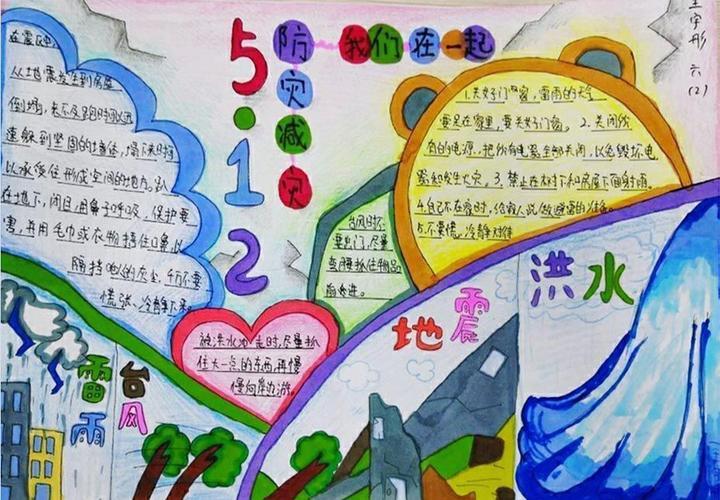 5·12
防灾减灾
我们在一起
王宇彤 六(2)
从地震发生到房屋
倒塌，来不及跑时可以迅
速躲到坚固的墙体，塌下来时
以承受住形成空间的地方。趴
在地下，闭目用鼻子呼吸，保护要
害，并用毛巾或衣物捂住口鼻，以
隔挡吸的灰尘，千万不要
慌张，冷静下来。
1.关好门窗，雷雨的天空
要呆在家里，要关好门窗。2.关闭所
有的电源，把所有电器全部关闭，以免毁坏电
器和发生火灾，3.禁止在树下和房屋下面躲雨。
4.自己不在家时，给家人说做避雷的准备。
5.不要慌，冷静对待
台风时不
要出门，尽量
弯腰抓住物品
而前进。
被洪水冲走时，尽量抓
住大一点的东西，再慢
慢向岸边游。
雷雨
台风
地震
洪水